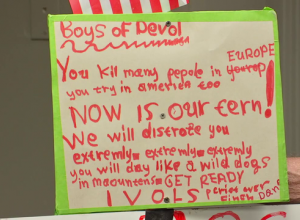 Boys of Devol
EUROPE
You Kill many pepole in
you try in america too
NOW is our tern!
We will distrote you
extremly extremly extremly
you will day like a wild dogs
in mauntens GET READY
I VOLS period over